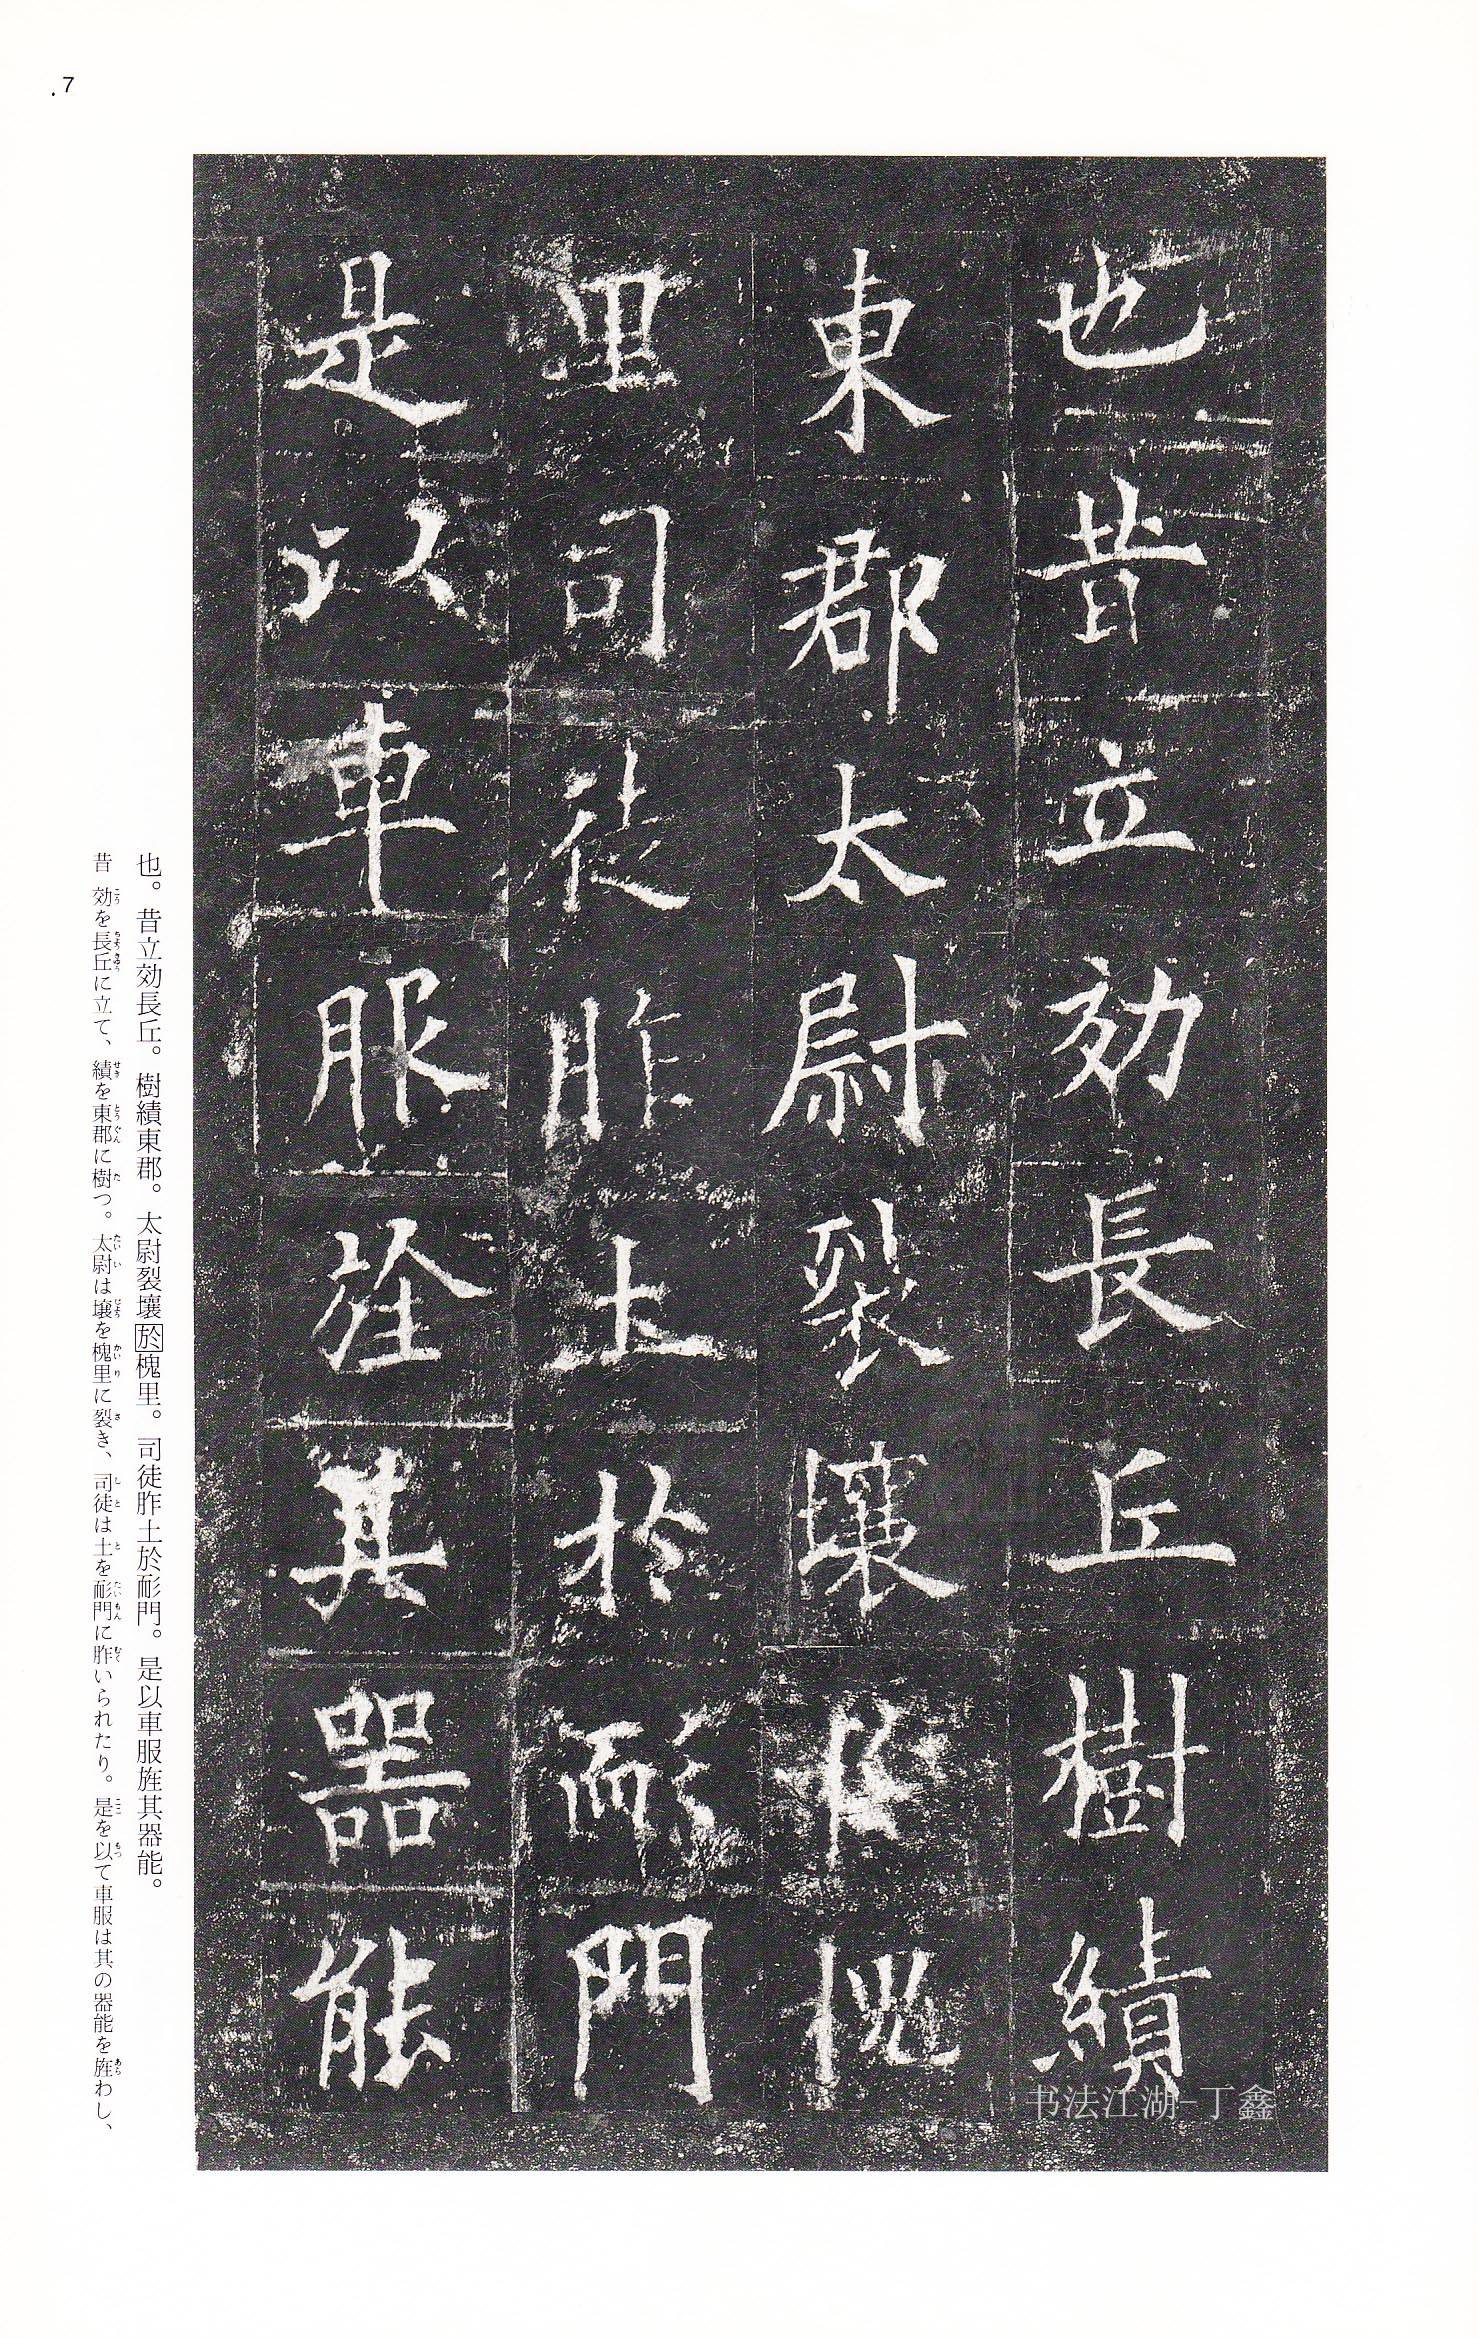 7
也昔立効長丘樹績
東郡太尉裂壤於槐
里司徒胙土於耏門
是以車服旌其器能
也。昔立効長丘。樹績東郡。太尉裂壤於槐里。司徒胙土於耏門。是以車服旌其器能。
昔効を長丘に立て、績を東郡に樹つ。太尉は壌を槐里に裂き、司徒は土を耏門に胙いられたり。是を以て車服は其の器能を旌わし、
书法江湖-丁鑫